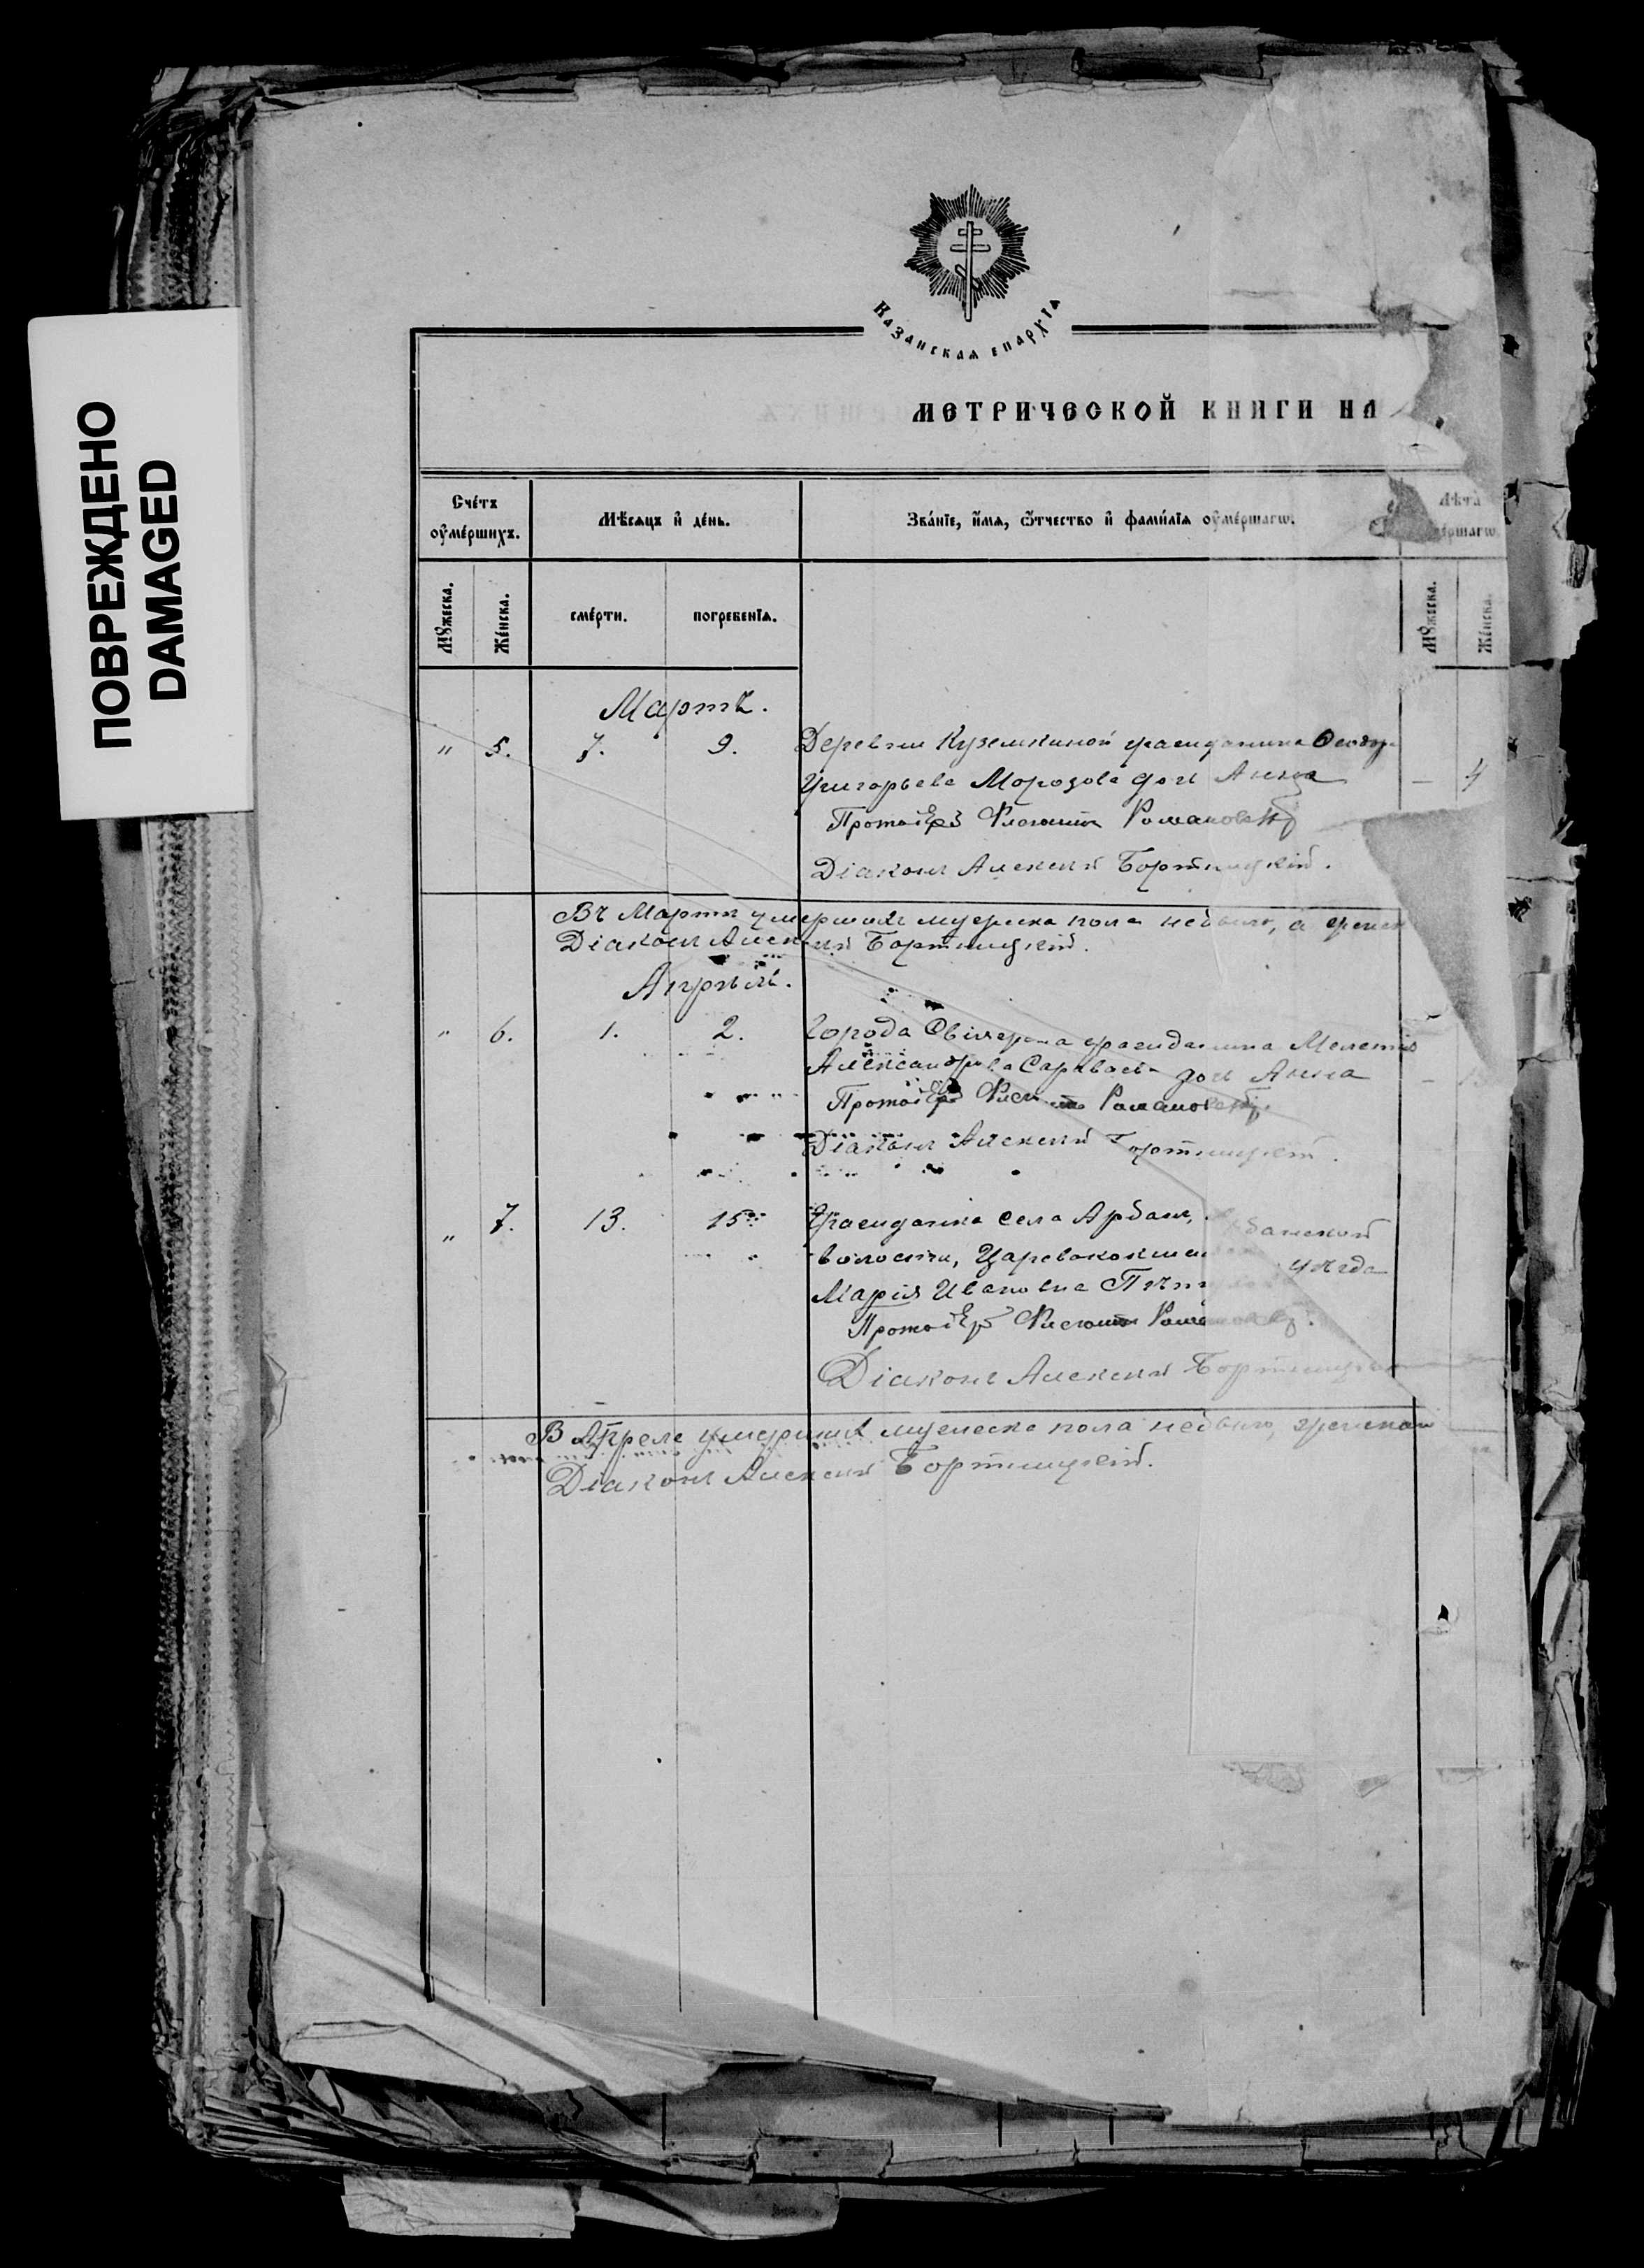 ПОВРЕЖДЕНО
DAMAGED
Казанская епархїа
МЕТРИЧЕСКОЙ КНИГИ НА
Счéтъ ᲂу҆мéршихъ.
Мѣ́сяцъ и҆ дéнь.
Звáнїе, и҆́мѧ, ѻ҆́тчество и҆ фами́лїѧ ᲂу҆мéршагѡ.
Лѣта
éршагѡ.
Мꙋжеска.
Жéнска.
смéрти.
погребенїѧ.
Мꙋжеска.
Жéнска.
Мартъ.
" 5. 7. 9. Деревни Кузємкиной гражданина Ѳеодор
Григорьева Морозова дочь Анна — 4
Протоіер Романовскій
Діаконъ Алексій Бортницкій.
Въ Мартѣ умершихъ мужеска пола небыло, а женск
Діаконъ Алексій Бортницкій.
Апрѣль.
" 6. 1. 2. Города гражданина Мелетія
Александрова дочь Анна
Протоіер Романовскій
Діаконъ Алексій Бортницкій.
" 7. 13. 15. Гражданка села Арбанъ, банской
волости, Царевококшай уѣзда
Марія Ивановна
Протоіер Романовскій.
Діаконъ Алексій Бортницкій
В Апреле умерших мужеска пола небыло, женскаг
Діаконъ Алексій Бортницкій.